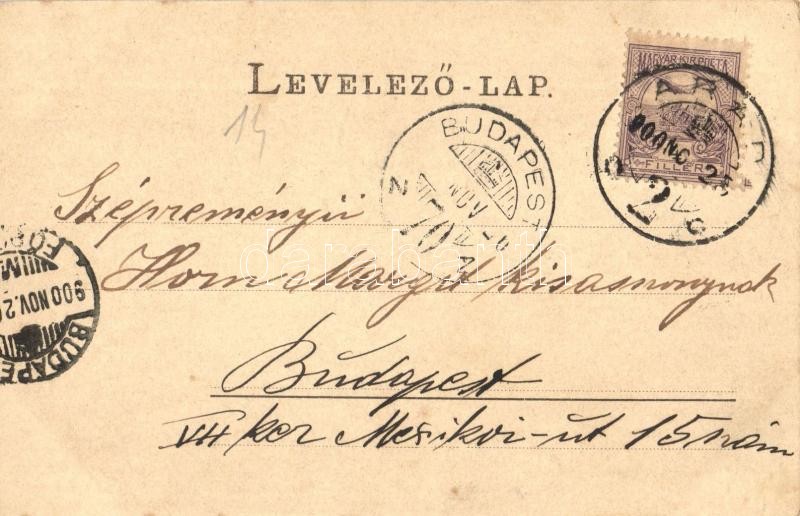 LEVELEZŐ-LAP.
14
MAGYAR KIR. POSTA
FILLÉR
ARAD
2
BUDAPEST
NOV
70
900 NOV. 26
BUDAPE
Szépreményű
Horn Margit kisasszonynak
Budapest
VII ker Mexikói-út 15 szám
darabanth